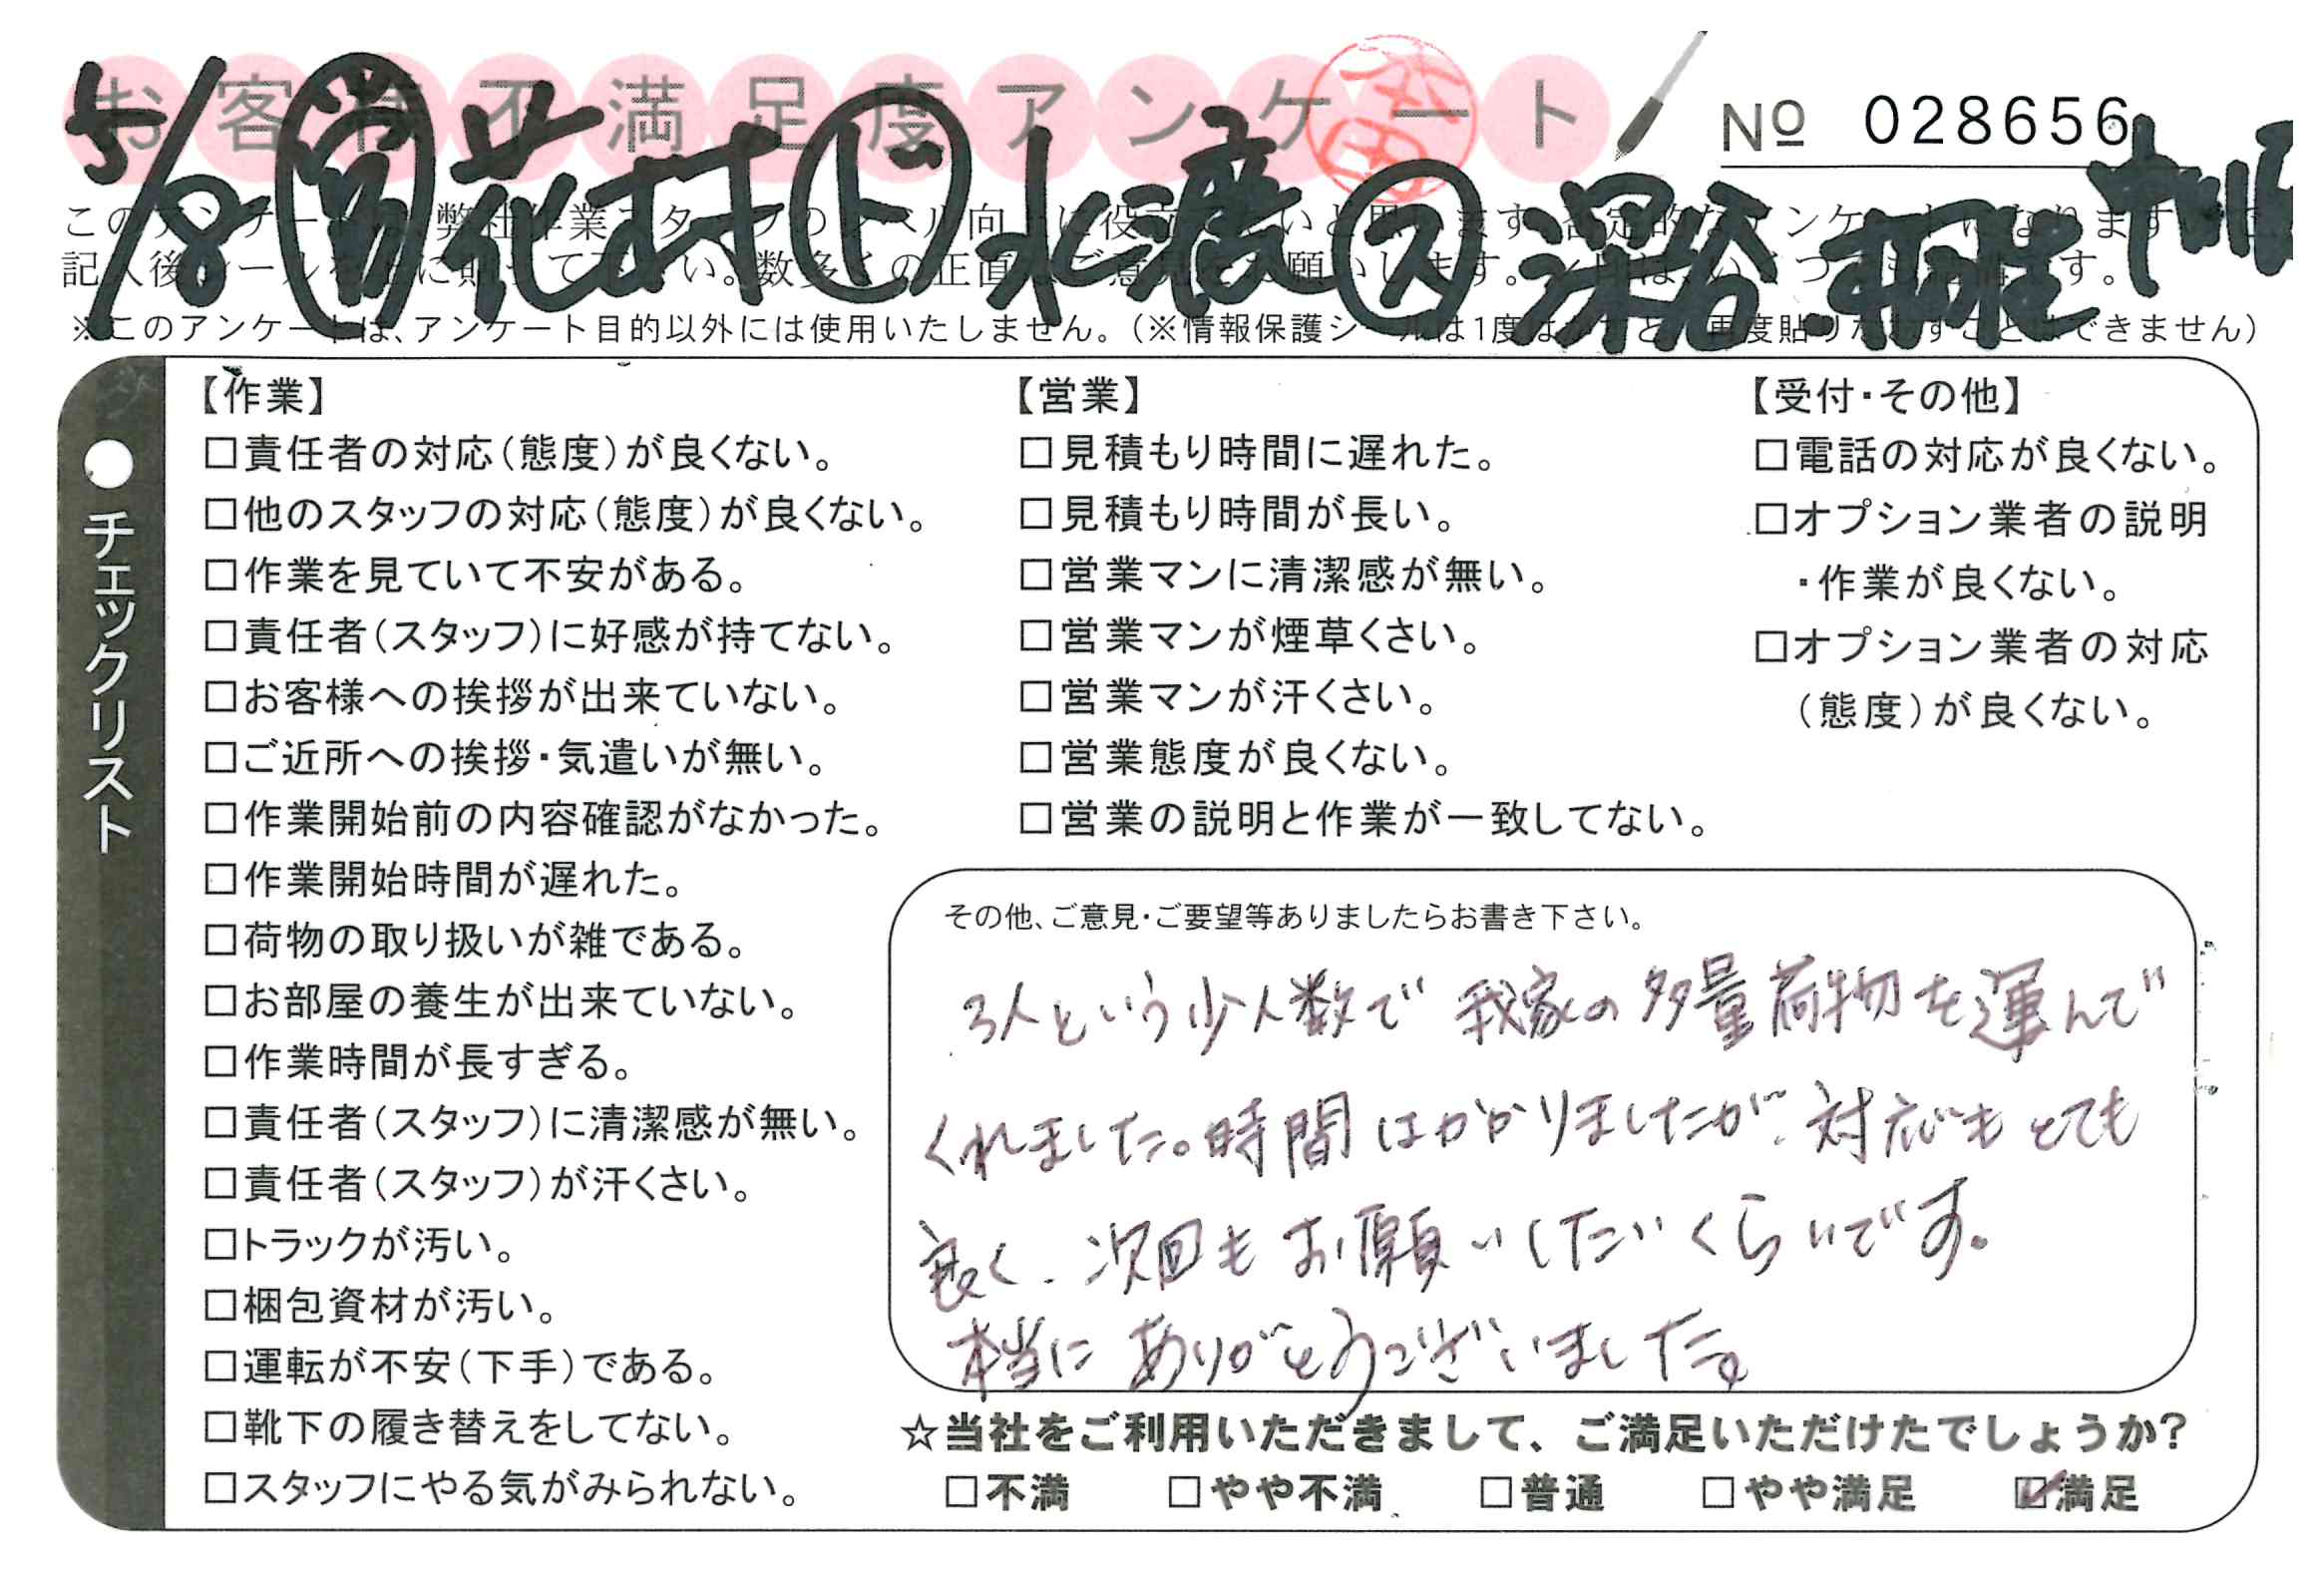 お客様不満足度アンケート
№ 028656
5/8 営 花村 ド 水渡 ス 深谷 桐生 中川
※このアンケートは、アンケート目的以外には使用いたしません。（※情報保護シールは1度はがすと、再度貼りなおすことはできません）
● チェックリスト
【作業】
□責任者の対応（態度）が良くない。
□他のスタッフの対応（態度）が良くない。
□作業を見ていて不安がある。
□責任者（スタッフ）に好感が持てない。
□お客様への挨拶が出来ていない。
□ご近所への挨拶・気遣いが無い。
□作業開始前の内容確認がなかった。
□作業開始時間が遅れた。
□荷物の取り扱いが雑である。
□お部屋の養生が出来ていない。
□作業時間が長すぎる。
□責任者（スタッフ）に清潔感が無い。
□責任者（スタッフ）が汗くさい。
□トラックが汚い。
□梱包資材が汚い。
□運転が不安（下手）である。
□靴下の履き替えをしてない。
□スタッフにやる気がみられない。
【営業】
□見積もり時間に遅れた。
□見積もり時間が長い。
□営業マンに清潔感が無い。
□営業マンが煙草くさい。
□営業マンが汗くさい。
□営業態度が良くない。
□営業の説明と作業が一致してない。
【受付・その他】
□電話の対応が良くない。
□オプション業者の説明
・作業が良くない。
□オプション業者の対応
（態度）が良くない。
その他、ご意見・ご要望等ありましたらお書き下さい。
3人という少人数で 我家の多量荷物を運んで
くれました。時間はかかりましたが、対応もとても
良く、次回もお願いしたいくらいです。
本当にありがとうございました。
☆当社をご利用いただきまして、ご満足いただけたでしょうか？
□不満 □やや不満 □普通 □やや満足 ☑満足